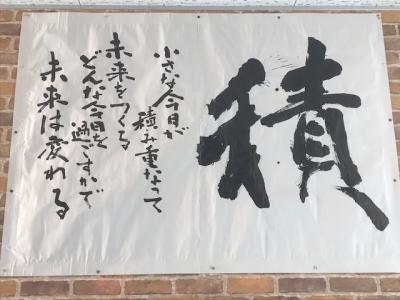 積
小さな今日が
積み重なって
未来をつくる
どんな今日を
過ごすかで
未来は変わる